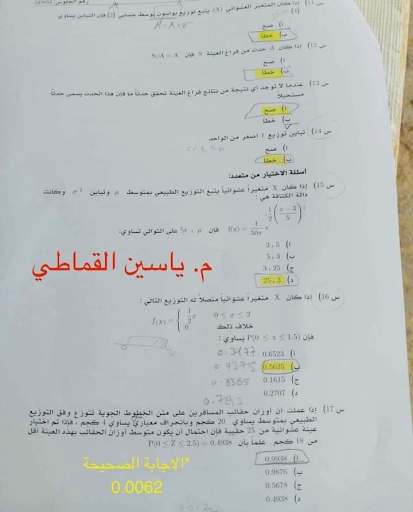 س 11) إذا كان المتغير العشوائي (X) يتبع توزيع بواسون بوسط حسابي (2) فإن التباين يساوي
(4)
أ) صح
ب) خطأ
س 12) إذا كان A حدث من فراغ العينة S فإن S∩A = A
أ) صح
ب) خطأ
س 13) عندما لا توجد أي نتيجة من نتائج فراغ العينة تحقق حدثا ما فإن هذا الحدث يسمى حدثاً
مستحيلاً
أ) صح
ب) خطأ
س 14) تباين توزيع t أصغر من الواحد
أ) صح
ب) خطأ
أسئلة الاختيار من متعدد:
س 15) إذا كان X متغيراً عشوائياً يتبع التوزيع الطبيعي بمتوسط μ وتباين σ² وكانت
دالة الكثافة هي :
فإن μ ، على التوالي تساوي:
أ) 3 ، 5
ب) 5 ، 3
ج) 3 ، 25
د) 25 ، 3
م. ياسين القماطي
س 16) إذا كان X متغيراً عشوائياً متصلاً له التوزيع التالي :
0 ≤ x ≤ 2
خلاف ذلك
فإن P(0 ≤ x ≤ 1.5) يساوي :
أ) 0.6523
ب) 0.5625
0.4375
ج) 0.1615
د) 0.2707
س 17) إذا عملت أن أوزان حقائب المسافرين على متن الخطوط الجوية تتوزع وفق التوزيع
الطبيعي بمتوسط يساوي 20 كجم وبانحراف معياري يساوي 4 كجم ، فإذا تم اختيار
عينة عشوائية من 25 حقيبة فإن احتمال أن يكون متوسط أوزان الحقائب بهذه العينة أقل
من 18 كجم . علماً بأن P(0 ≤ Z ≤ 2.5) = 0.4938
أ) 0.9938
ب) 0.9876
ج) 0.5678
د) 0.4938
*الاجابة الصحيحة
0.0062